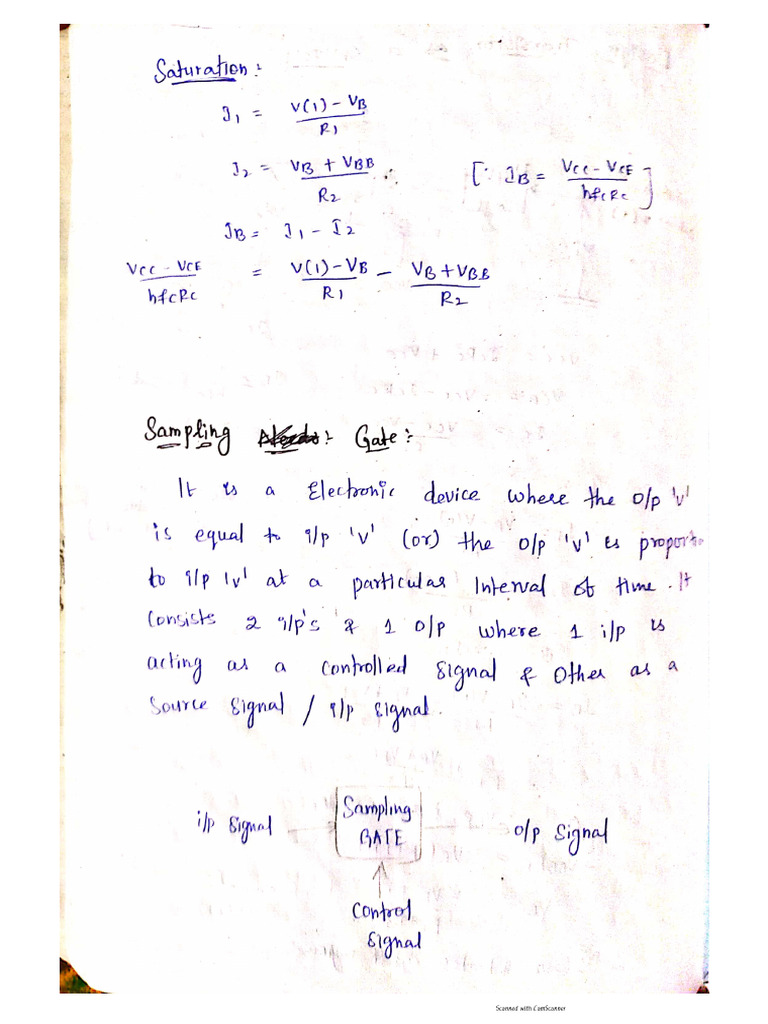 Saturation :-
I1 = V(1) - VB / R1
I2 = VB + VBB / R2 [∵ IB = VCC - VCE / hfcRc]
IB = I1 - I2
VCC - VCE / hfcRc = V(1) - VB / R1 - VB + VBB / R2
Sampling Gate :-
It is a Electronic device where the o/p 'v'
is equal to i/p 'v' (or) the o/p 'v' is proport
to i/p 'v' at a particular Interval of time. It
Consists 2 i/p's & 1 o/p where 1 i/p is
acting as a controlled signal & other as a
Source signal / i/p signal.
i/p signal Sampling GATE o/p signal
Control
signal
Scanned with CamScanner